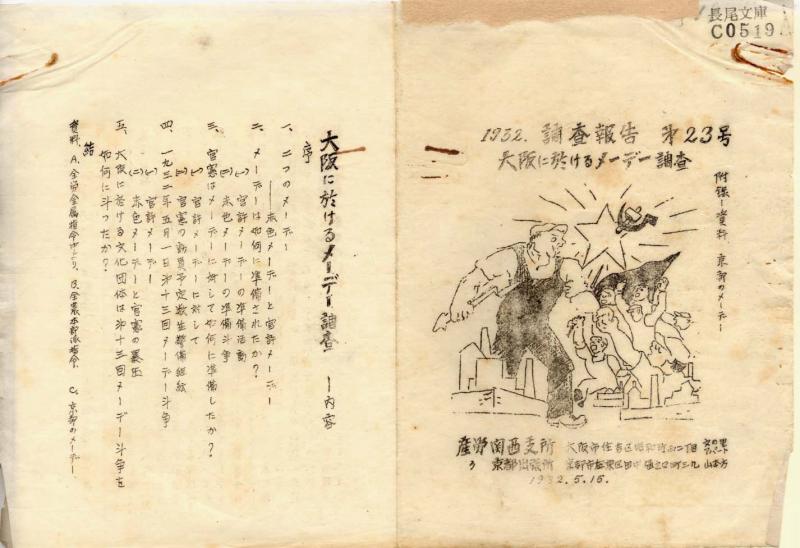 長尾文庫
C0519
1932. 調査報告 第23号
大阪に於けるメーデー調査
附録ー資料 京都のメーデー
産労関西支所 大阪市住吉区昭和町
〃 京都出張所 京都市左京区田中
1932.5.15.
大阪に於けるメーデー調査 ー内容
序
一、二つのメーデー
――赤色メーデーと官許メーデー
二、メーデーは如何に準備されたか?
(一) 官許メーデーの準備活動
(二) 赤色メーデーの準備斗争
三、官憲はメーデーに対して如何に準備したか?
(一) 官許メーデーに対して
(二) 官憲の動員予定数生警備組織
四、一九三二年五月一日第十三回メーデー斗争
(一) 官許メーデー
(二) 赤色メーデーと官憲の裏圧
五、大阪に於ける文化団体は第十三回メーデー斗争を
如何に斗ったか?
結
資料、A、全労金属指令中より、B、全農本部派指令、C、京都のメーデー、